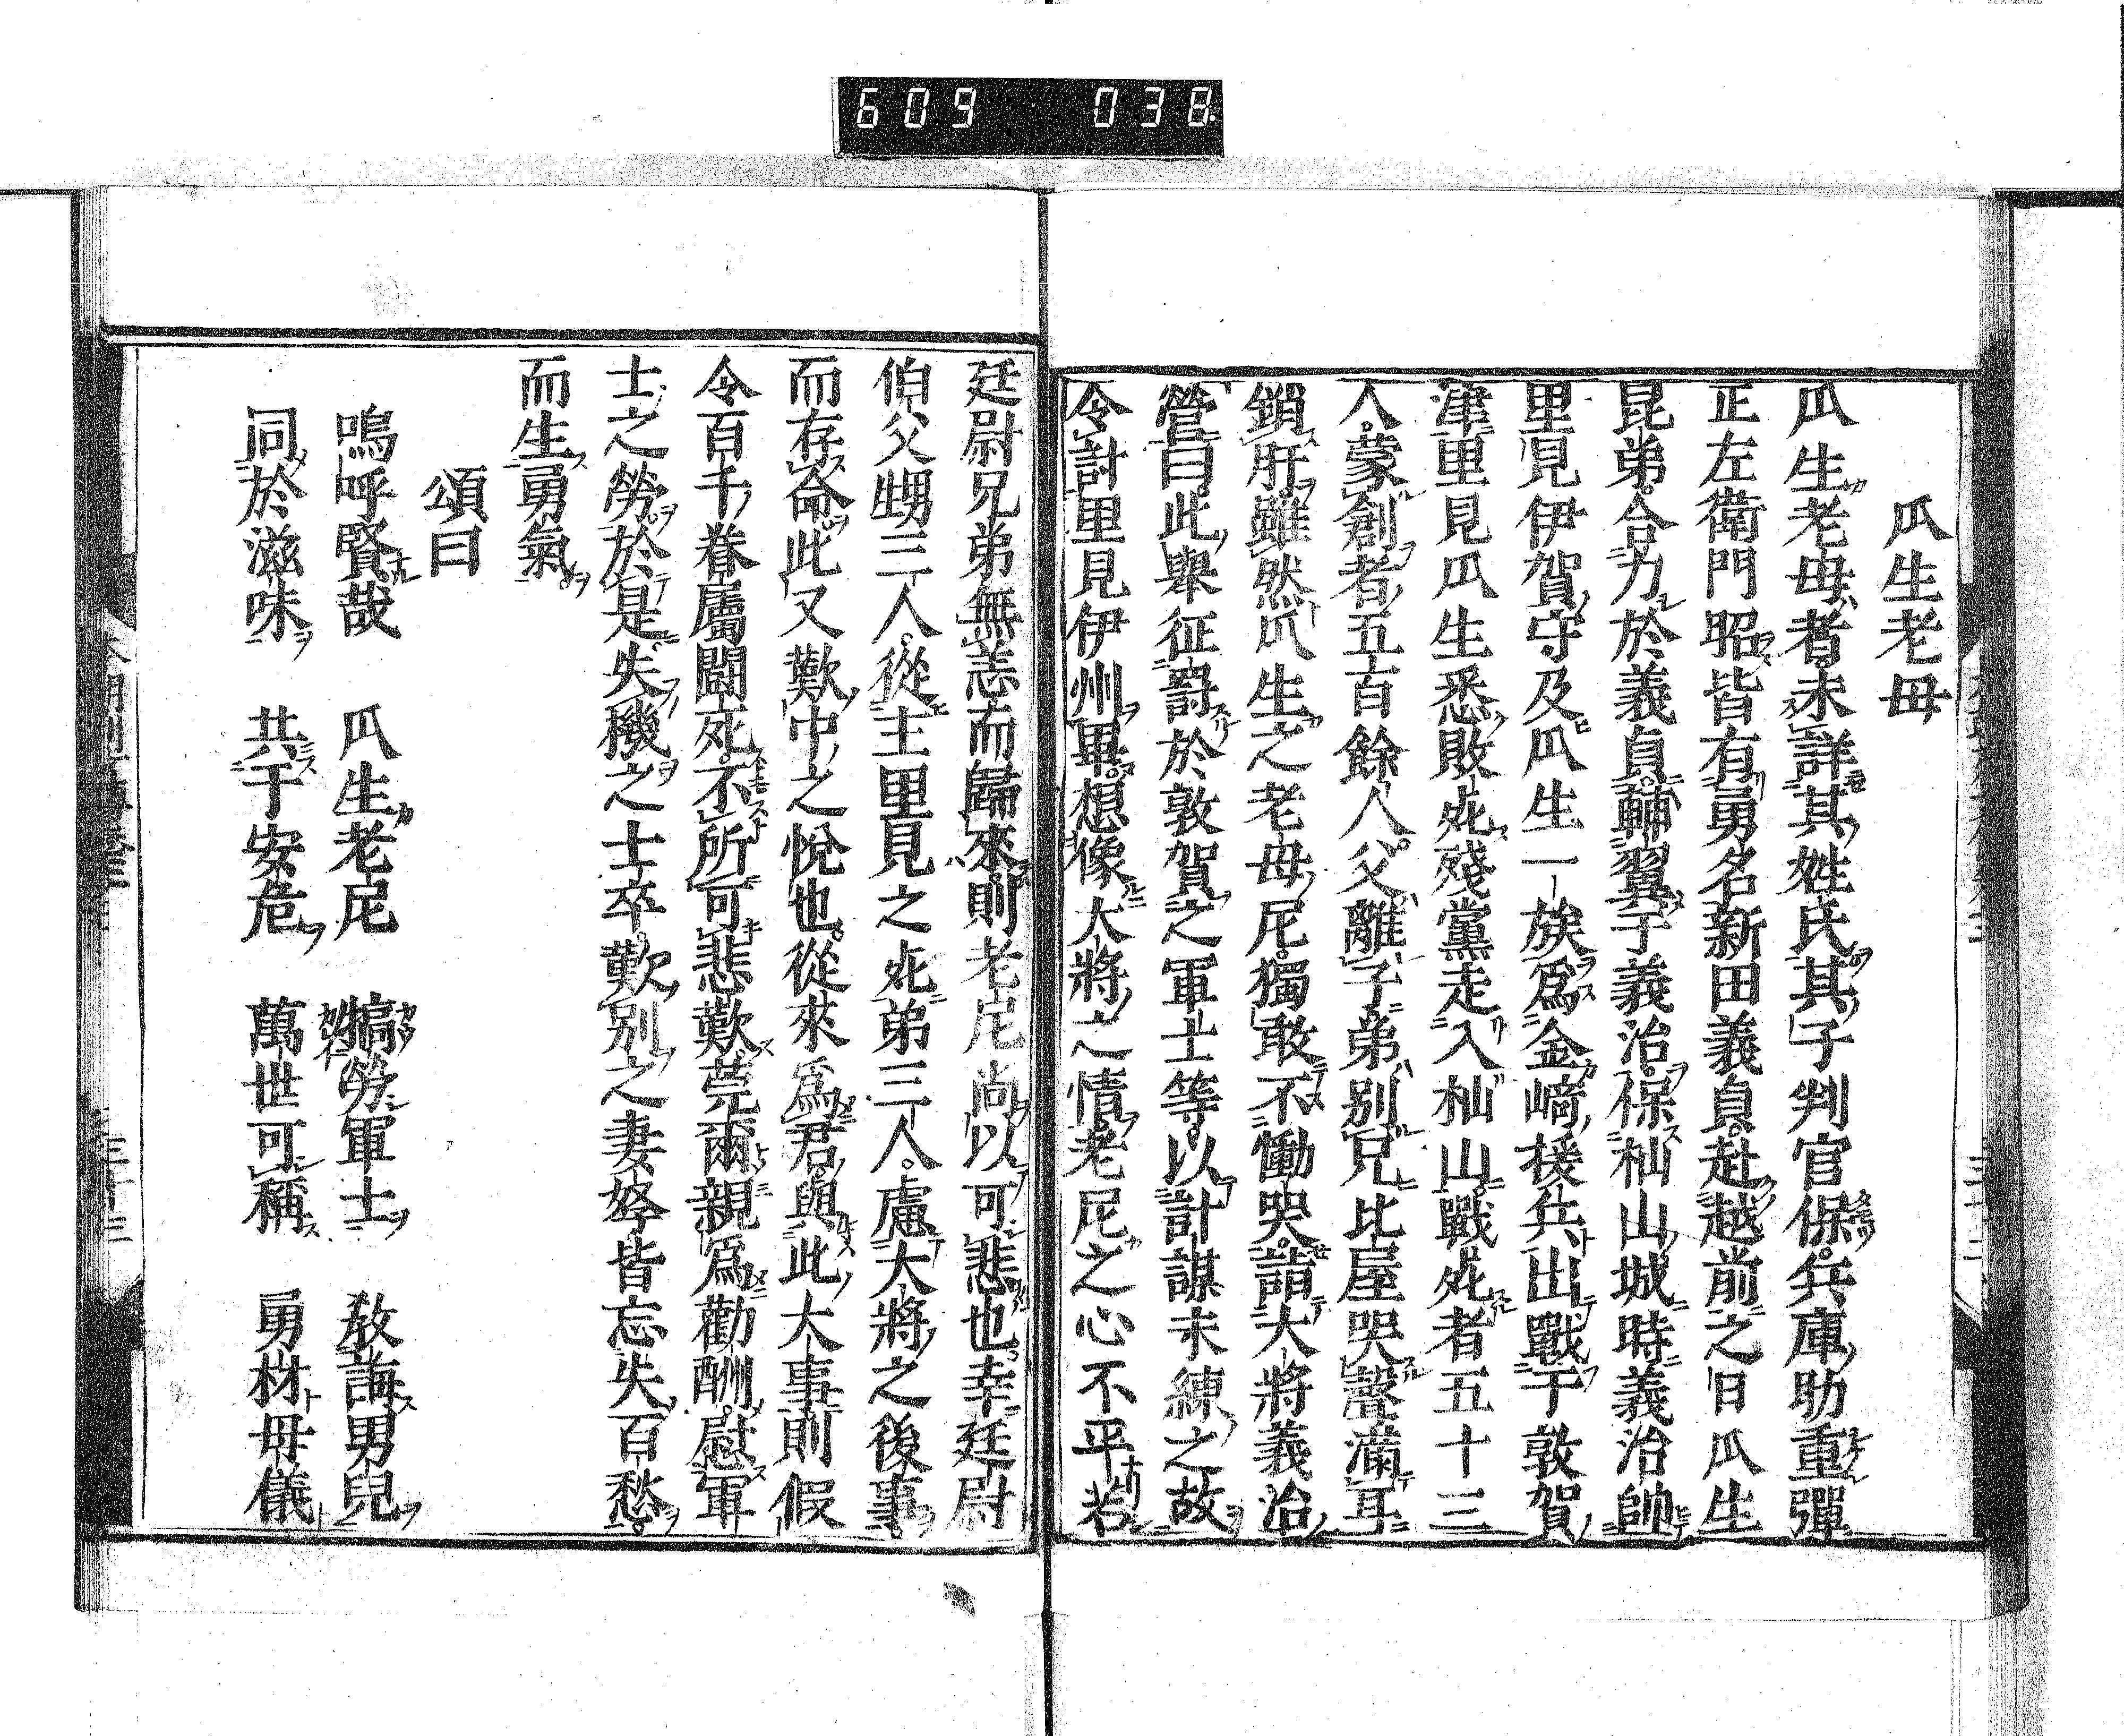 609 038
瓜生老母
瓜生老母者未詳其姓氏其子判官保兵庫助重彈
正左衛門昭皆有勇名新田義貞赴越前之日瓜生
昆弟合力於義貞輔翼于義治保杣山城時義治帥
里見伊賀守及瓜生一族為金﨑援兵出戰于敦賀
津里見瓜生悉敗死殘黨走入杣山戰死者五十三
人蒙創者五百餘人父離子弟別兄比屋哭聲滿耳
鎖肝雖然瓜生之老母尼獨敢不慟哭詣大將義治
營曰此舉征罸於敦賀之軍士等以計謀未練之故
令討里見伊州畢想像大將之情老尼之心不平若
廷尉兄弟無恙而歸來則老尼尚以可悲也幸廷尉
伯父甥三人從主里見之死弟三人慮大將之後事
而存命此又歎中之悅也從來為君與此大事則假
令百千眷屬鬪死不所可悲歎莞爾親為勸酬慰軍
士之勞於是失機之士卒歎別之妻孥皆忘失百愁
而生勇氣
頌曰
嗚呼賢哉 瓜生老尼 犒勞軍士 教誨男兒
同於滋味 共于安危 萬世可稱 勇材母儀